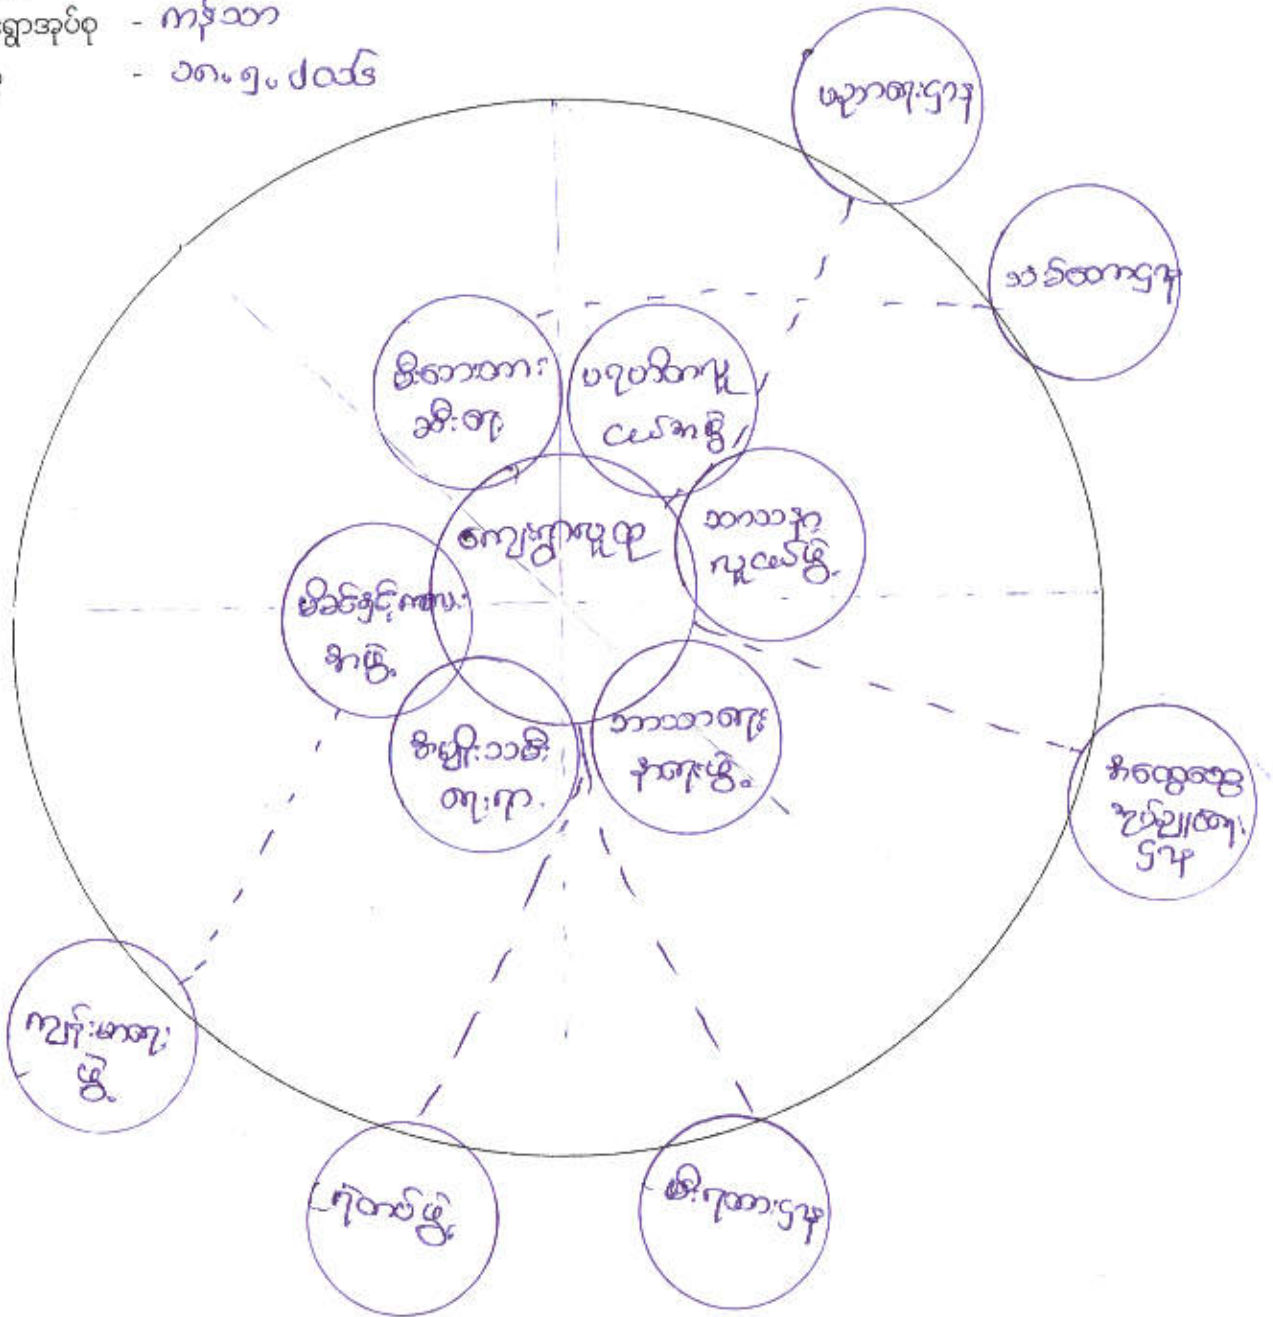 ရွာအုပ်စု - ကန်သာ
- ၁၈.၅.၂၀၁၆
ပညာရေးဌာန
သစ်တောဌာန
မီးဘေးတား
ဆီးရေး
ပရဟိတလူ
ငယ်အဖွဲ့
ကျေးရွာလူထု
သာသနာ့
လူငယ်ဖွဲ့
မိခင်နှင့်ကလေး
အဖွဲ့
အမျိုးသမီး
ရေးရာ
ဘာသာရေး
နာရေးဖွဲ့
အထွေထွေ
အုပ်ချုပ်ရေး
ဌာန
ကျန်းမာရေး
ဖွဲ့
ရဲတပ်ဖွဲ့
မီးရထားဌာန